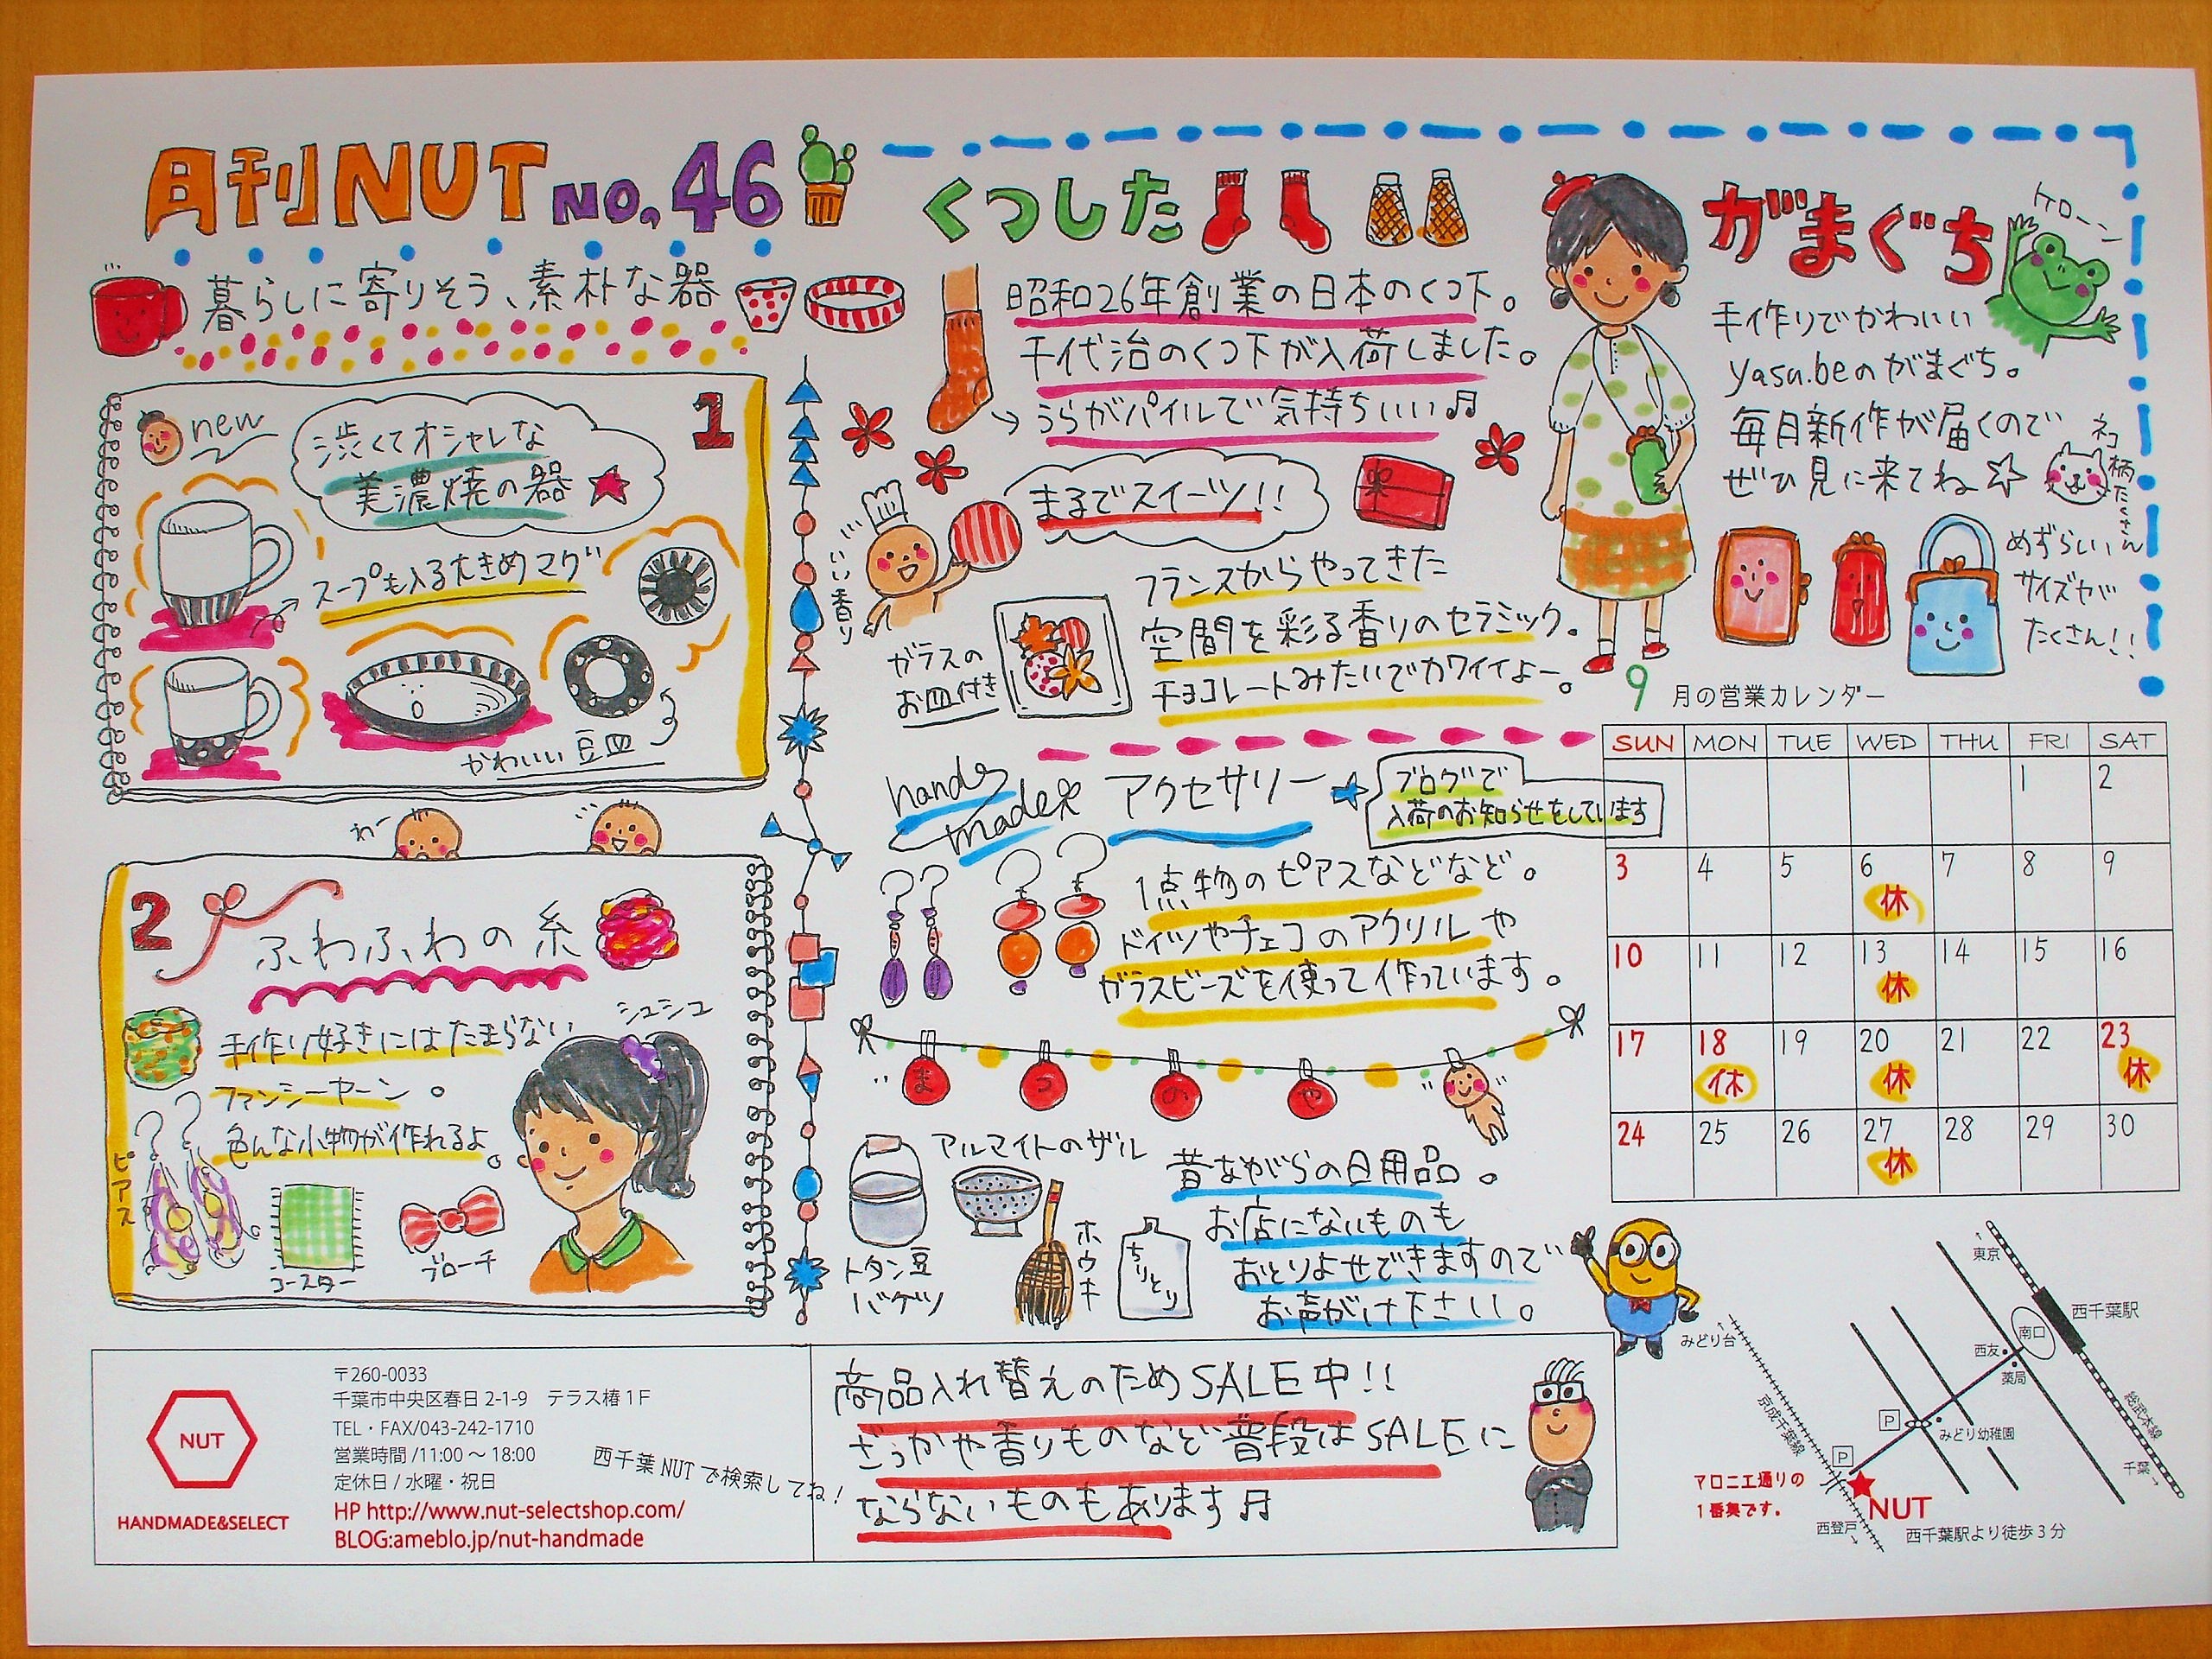 月刊NUT NO.46
暮らしに寄りそう、素朴な器
1
new
渋くてオシャレな
美濃焼の器
スープも入る大きめマグ
かわいい豆皿
わー
2
ふわふわの糸
シュシュ
手作り好きにはたまらない
ファンシーヤーン。
色んな小物が作れるよ。
ピアス
コースター
ブローチ
くつした
昭和26年創業の日本のくつ下。
千代治のくつ下が入荷しました。
うらがパイルで気持ちいい♬
まるでスイーツ!!
いい香り
フランスからやってきた
空間を彩る香りのセラミック。
チョコレートみたいでカワイイよー。
ガラスの
お皿付き
がまぐち
ケローン
手作りでかわいい
yasu.beのがまぐち。
毎月新作が届くので
ぜひ見に来てね☆
ネコ柄たくさん
めずらしい
サイズが
たくさん!!
hand
made
アクセサリー
ブログで
入荷のお知らせをしています
1点物のピアスなどなど。
ドイツやチェコのアクリルや
ガラスビーズを使って作っています。
まつのや
アルマイトのザル
トタン豆
バケツ
ホウキ
ちりとり
昔ながらの日用品。
お店にないものも
おとりよせできますので
お声がけ下さい。
9月の営業カレンダー
SUN MON TUE WED THU FRI SAT
1 2
3 4 5 6 7 8 9
休
10 11 12 13 14 15 16
休
17 18 19 20 21 22 23
休 休 休
24 25 26 27 28 29 30
休
NUT
HANDMADE&SELECT
〒260-0033
千葉市中央区春日2-1-9 テラス椿1F
TEL・FAX/043-242-1710
営業時間/11:00～18:00
定休日/水曜・祝日
HP http://www.nut-selectshop.com/
BLOG:ameblo.jp/nut-handmade
西千葉NUTで検索してね!
商品入れ替えのためSALE中!!
ざっかや香りものなど普段はSALEに
ならないものもあります♬
東京
西千葉駅
南口
みどり台
西友
薬局
京成千葉線
総武本線
P
みどり幼稚園
P
千葉
マロニエ通りの
1番奥です。
NUT
西登戸
西千葉駅より徒歩3分